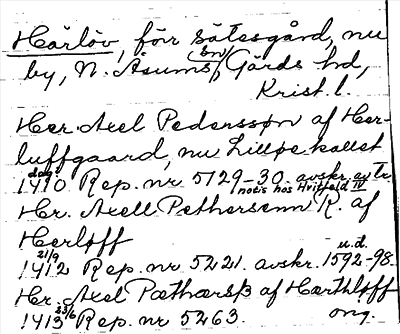 Härlöv, förr sätesgård, nu
by, N. Åsums sn, Gärds hd,
Krist. l.
Her Axel Pederssøn af Her-
luffgaard, nu Lillöe kallet
1410 dag? Rep. nr 5129-30. avskr. av Tr.
notis hos Hvitfeld IV
Hr. Axell Pethersenn R. af
Herløff
1412 21/9 Rep. nr 5221. avskr. 1592-98. u.d.
Hr. Axel Pæthærsß af Hærthløff
1413 23/6 Rep. nr 5263. orig.